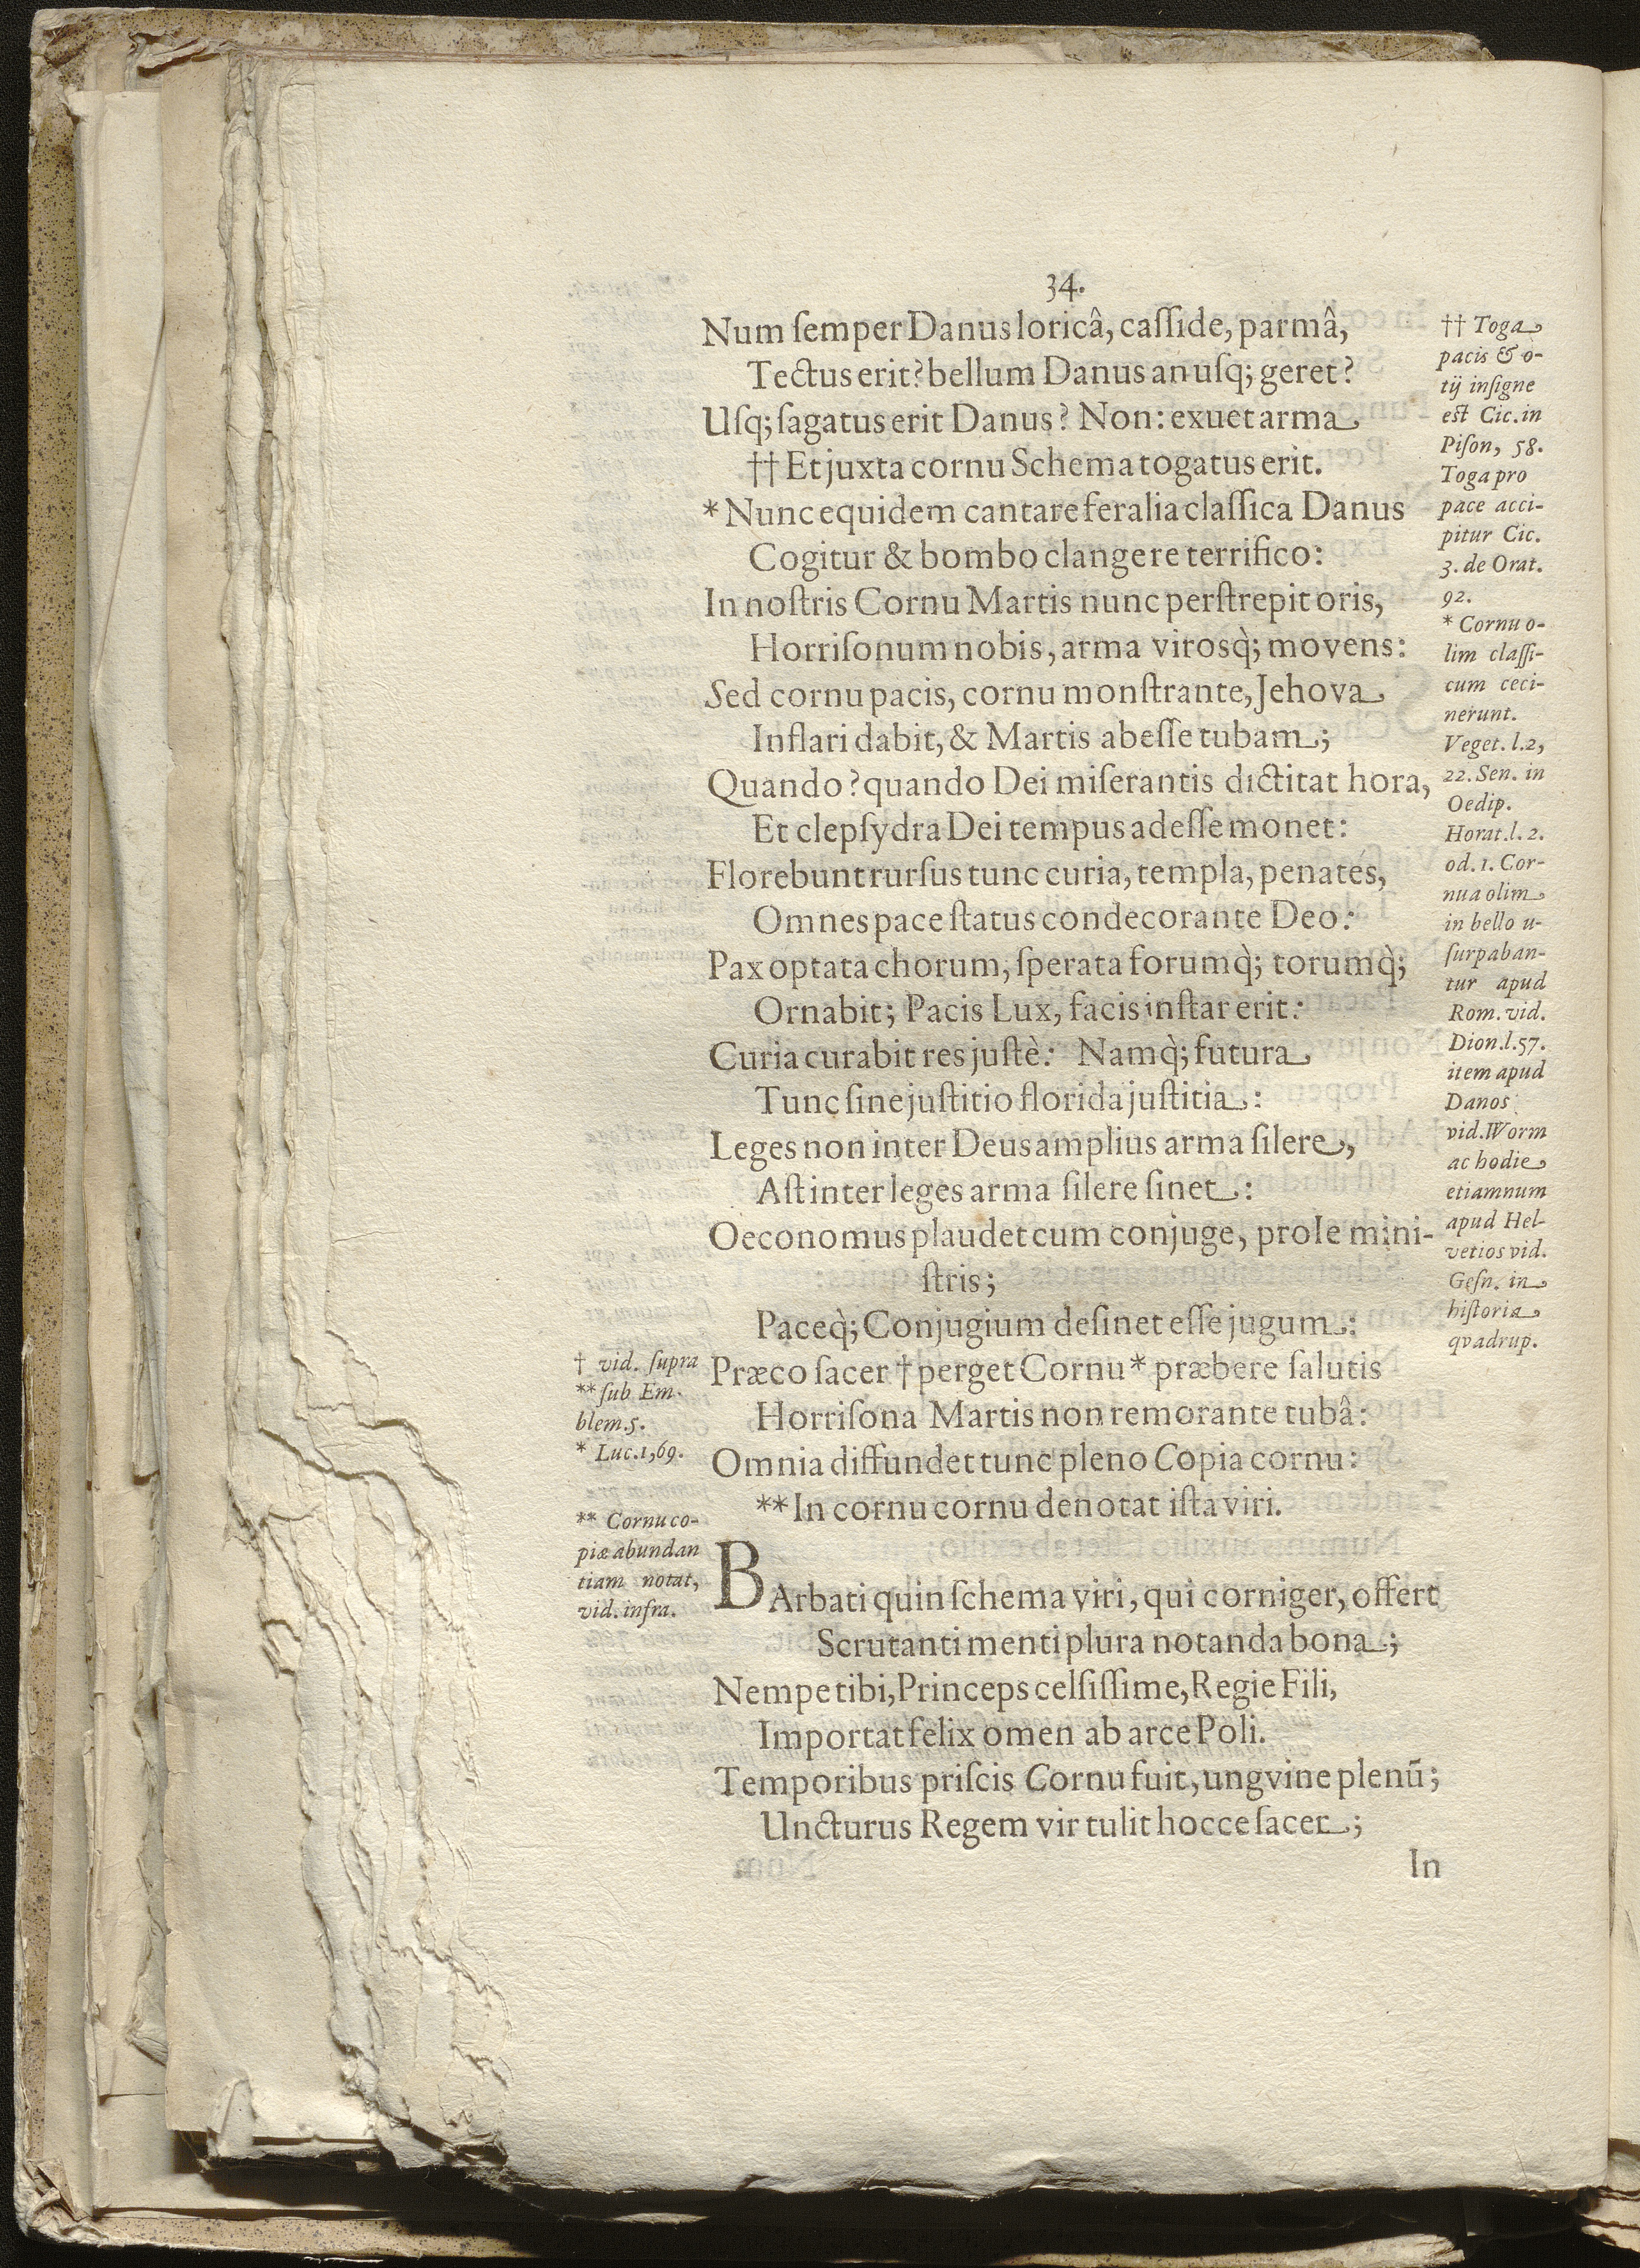 34.
Num ſemper Danus loricâ, caſſide, parmâ,
Tectus erit? bellum Danus an uſq; geret?
Uſq; ſagatus erit Danus? Non: exuet arma
†† Et juxta cornu Schema togatus erit.
* Nunc equidem cantare feralia claſſica Danus
Cogitur & bombo clangere terrifico:
In noſtris Cornu Martis nunc perſtrepit oris,
Horriſonum nobis, arma virosq̀; movens:
Sed cornu pacis, cornu monſtrante, Jehova
Inflari dabit, & Martis abeſſe tubam;
Quando? quando Dei miſerantis dictitat hora,
Et clepſydra Dei tempus adeſſe monet:
Florebunt rurſus tunc curia, templa, penates,
Omnes pace ſtatus condecorante Deo:
Pax optata chorum, ſperata forumq̀; torumq̀;
Ornabit; Pacis Lux, facis inſtar erit:
Curia curabit res juſtè: Namq̀; futura
Tunc ſine juſtitio florida juſtitia:
Leges non inter Deus amplius arma ſilere,
Aſt inter leges arma ſilere ſinet:
Oeconomus plaudet cum conjuge, prole mini-
ſtris;
Paceq̀; Conjugium deſinet eſſe jugum:
Præco ſacer † perget Cornu * præbere ſalutis
Horriſona Martis non remorante tubâ:
Omnia diffundet tunc pleno Copia cornu:
** In cornu cornu denotat iſta viri.
BArbati quin ſchema viri, qui corniger, offert
Scrutanti menti plura notanda bona;
Nempe tibi, Princeps celſiſſime, Regie Fili,
Importat felix omen ab arce Poli.
Temporibus priſcis Cornu fuit, ungvine plenū;
Uncturus Regem vir tulit hocce ſacer;
In
†† Toga
pacis & o-
tij inſigne
est Cic. in
Piſon, 58.
Toga pro
pace acci-
pitur Cic.
3. de Orat.
92.
* Cornu o-
lim claſſi-
cum ceci-
nerunt.
Veget. l. 2,
22. Sen. in
Oedip.
Horat. l. 2.
od. 1. Cor-
nua olim
in bello u-
ſurpaban-
tur apud
Rom. vid.
Dion. l. 57.
item apud
Danos
vid. Worm
ac hodie
etiamnum
apud Hel-
vetios vid.
Geſn. in
hiſtoria
qvadrup.
† vid. ſupra
** ſub Em-
blem. 5.
* Luc. 1, 69.
** Cornu co-
piæ abundan
tiam notat,
vid. infra.